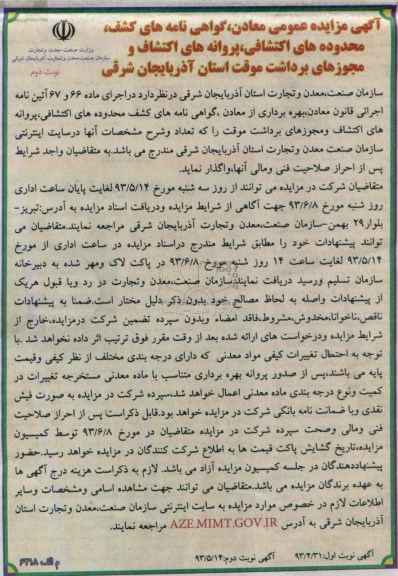 آگهی مزایده عمومی معادن،گواهی نامه های کشف،
محدوده های اکتشافی،پروانه های اکتشاف و
مجوزهای برداشت موقت استان آذربایجان شرقی
وزارت صنعت معدن وتجارت
سازمان صنعت،معدن وتجارت آذربایجان شرقی
نوبت دوم
سازمان صنعت،معدن وتجارت استان آذربایجان شرقی درنظردارد دراجرای ماده ۶۶ و ۶۷ آئین نامه
اجرائی قانون معادن،بهره برداری از معادن ،گواهی نامه های کشف محدوده های اکتشافی،پروانه
های اکتشاف ومجوزهای برداشت موقت را که تعداد وشرح مشخصات آنها درسایت اینترنتی
سازمان صنعت معدن وتجارت استان آذربایجان شرقی مندرج می باشد.به متقاضیان واجد شرایط
پس از احراز صلاحیت فنی ومالی آنها،واگذار نماید.
متقاضیان شرکت در مزایده می توانند از روز سه شنبه مورخ ۹۳/۵/۱۴ لغایت پایان ساعت اداری
روز شنبه مورخ ۹۳/۶/۸ جهت آگاهی از شرایط مزایده ودریافت اسناد مزایده به آدرس:تبریز-
بلوار۲۹ بهمن-سازمان صنعت،معدن وتجارت آذربایجان شرقی مراجعه نمایند.متقاضیان می
توانند پیشنهادات خود را مطابق شرایط مندرج دراسناد مزایده در ساعت اداری از مورخ
۹۳/۵/۱۴ لغایت ساعت ۱۴ روز شنبه مورخ ۹۳/۶/۸ در پاکت لاک ومهر شده به دبیرخانه
سازمان تسلیم ورسید دریافت نمایند.سازمان صنعت،معدن وتجارت در رد ویا قبول هریک
از پیشنهادات واصله به لحاظ مصالح خود بدون ذکر دلیل مختار است.ضمنا به پیشنهادات
ناقص،ناخوانا،مخدوش،مشروط،فاقد امضاء وبدون سپرده تضمین شرکت درمزایده،خارج از
شرایط مزایده ودرخواست های ارائه شده بعد از وقت مقرر فوق ترتیب اثر داده نخواهد شد .با
توجه به احتمال تغییرات کیفی مواد معدنی که دارای درجه بندی مختلف از نظر کیفی وقیمت
پایه می باشند،پس از صدور پروانه بهره برداری متناسب با ماده معدنی مستخرجه تغییرات در
کمیت ونوع درجه بندی ماده معدنی اعمال خواهد شد،سپرده شرکت در مزایده به صورت فیش
نقدی ویا ضمانت نامه بانکی شرکت در مزایده خواهد بود.قابل ذکراست پس از احراز صلاحیت
فنی ومالی وصحت سپرده شرکت در مزایده متقاضیان در مورخ ۹۳/۶/۸ توسط کمیسیون
مزایده،تاریخ گشایش پاکت قیمت ها به اطلاع شرکت کنندگان در مزایده خواهد رسید.حضور
پیشنهاددهندگان در جلسه کمیسیون مزایده آزاد می باشد. لازم به ذکراست هزینه درج آگهی ها
به عهده برندگان مزایده می باشد.متقاضیان می توانند جهت مشاهده اسامی ومشخصات وسایر
اطلاعات لازم در خصوص موارد مزایده به سایت اینترنتی سازمان صنعت،معدن وتجارت استان
آذربایجان شرقی به آدرس AZE.MIMT.GOV.IR مراجعه نمایند.
آگهی نوبت اول:۹۳/۴/۳۱ آگهی نوبت دوم:۹۳/۵/۱۴
م الف ۶۲۱۸